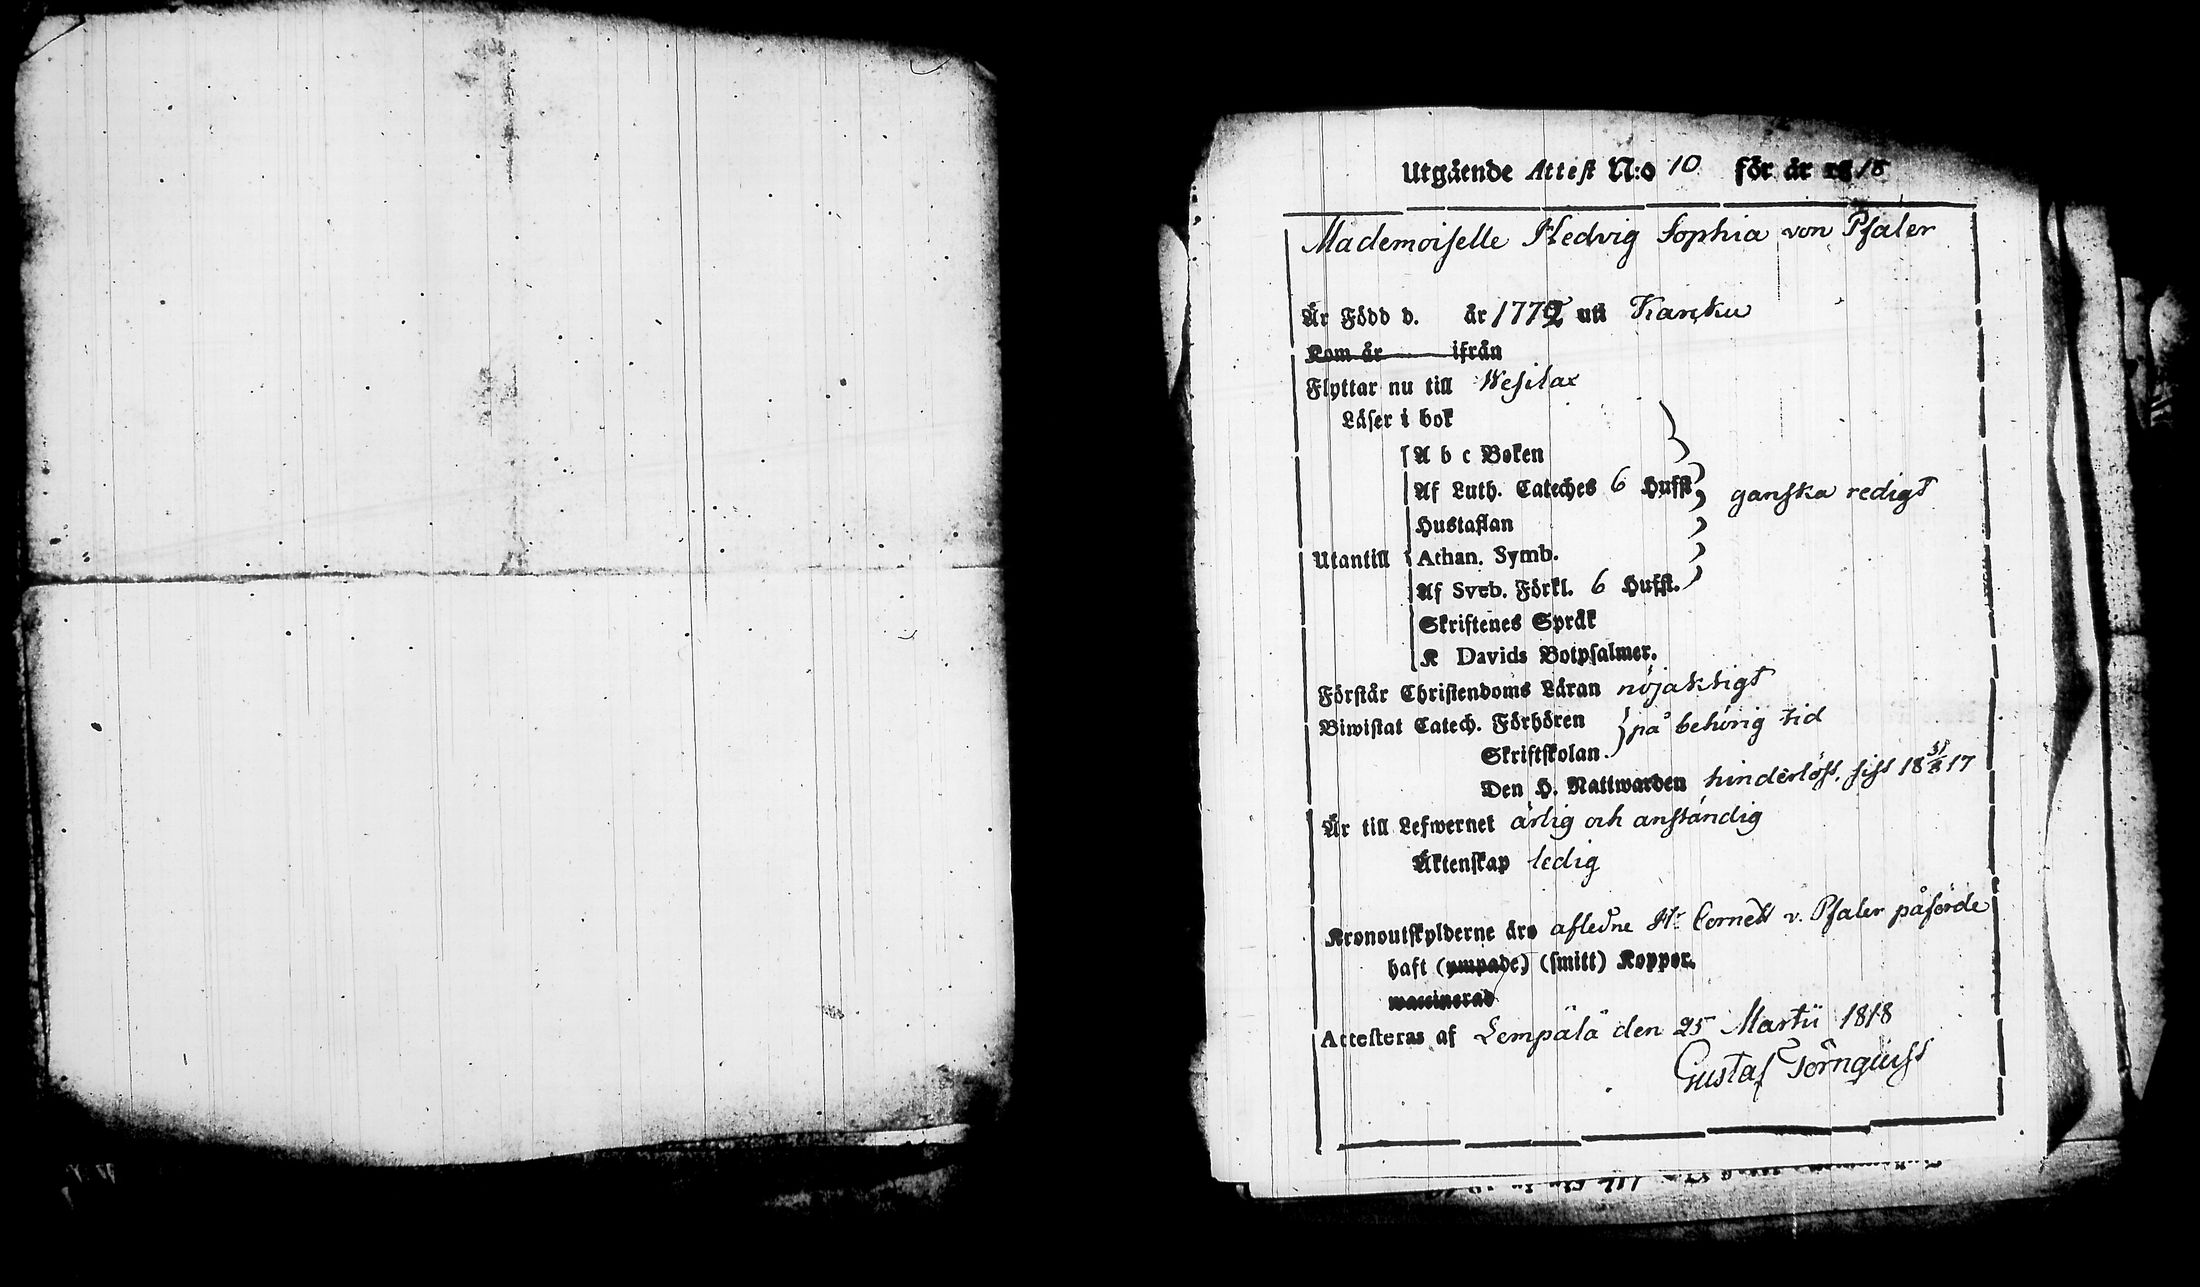 Utgående Attest N:o 10 för år 1818
Mademoiselle Hedvig Sophia von Pfaler
Är Född d. år 1772 uti Kansku
Kom år ifrån
Flyttar nu till Wesilax
Läser i bok
A b c Boken
Af Luth. Cateches 6 Hufst ganska redigt
Hustaflan
Utantill Athan. Symb.
Af Sveb. Förkl. 6 Hufst.
Skriftenes Språk
K Davids Botpsalmer.
Förstår Christendoms Läran nöjaktigt
Biwistat Catech. Förhören på behörig tid
Skriftskolan.
Den H. Nattwarden hinderlöst, sist 18 31/8 17
Är till Lefwernet ärlig och anständig
Äktenskap ledig
Kronoutskylderne äro afledne Hr Cornett v. Pfaler påförde
haft (ympade) (smitt) Koppor.
waccinerad
Attesteras af Lempälä den 25 Martii 1818
Gustaf Törnqvist